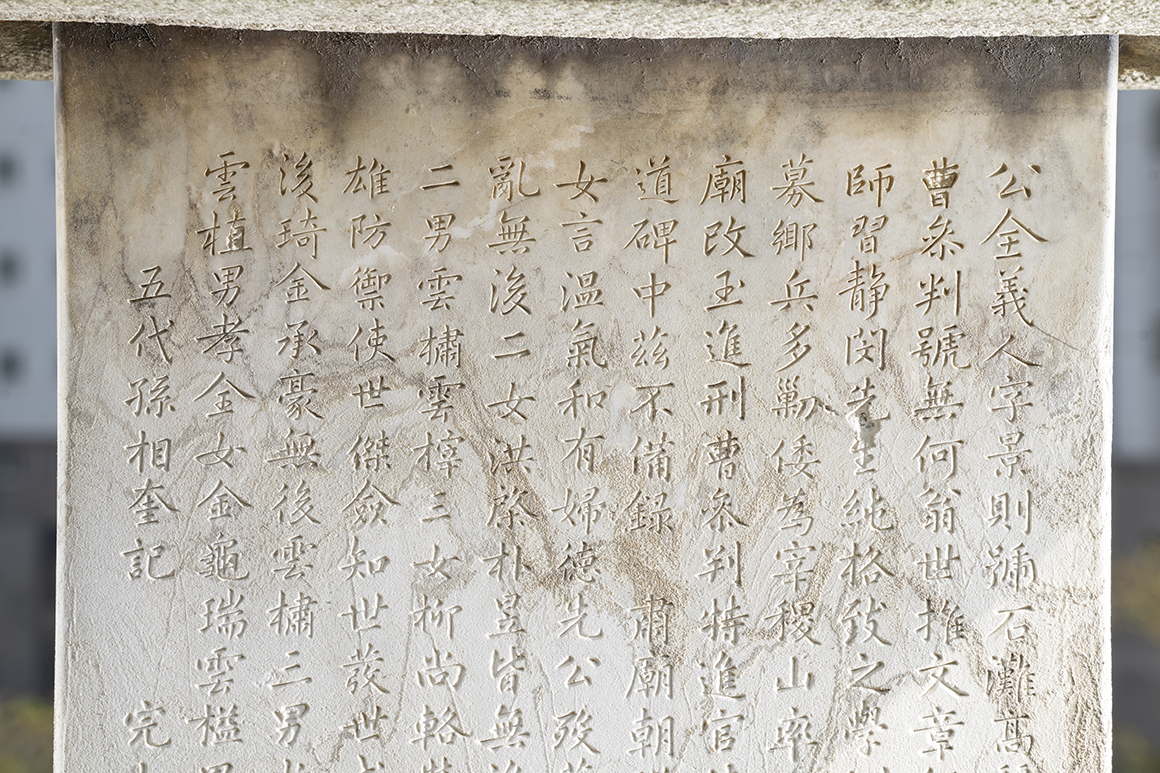 公全義人字景則號石灘高
曹叅判號無何翁世推文章
師習静閔先生純格致之學
募鄉兵多勦倭為宰稷山率
廟改玉進刑曹叅判特進官
道碑中玆不備録 肅廟朝
女言温氣和有婦德先公歿
亂無後二女洪棨朴昱皆無
二男雲橚雲梓三女柳尚輅
雄防禦使世傑僉知世茂世
後琦金承豪無後雲橚三男
雲植男孝金女金龜瑞雲檻
五代孫相奎記 完